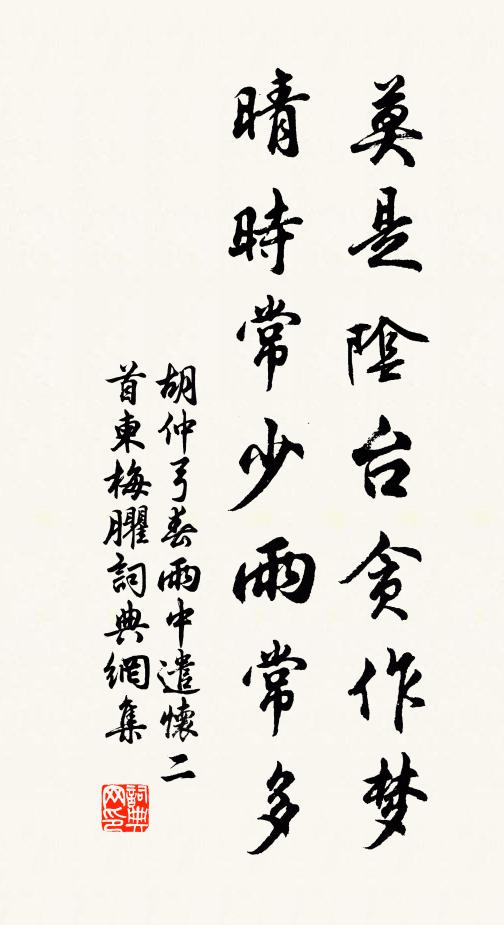 莫是陰台贪作梦
晴時常少雨常多
胡仲弓春雨中遣懷二
首東梅臞詞典網集
詞典
网印